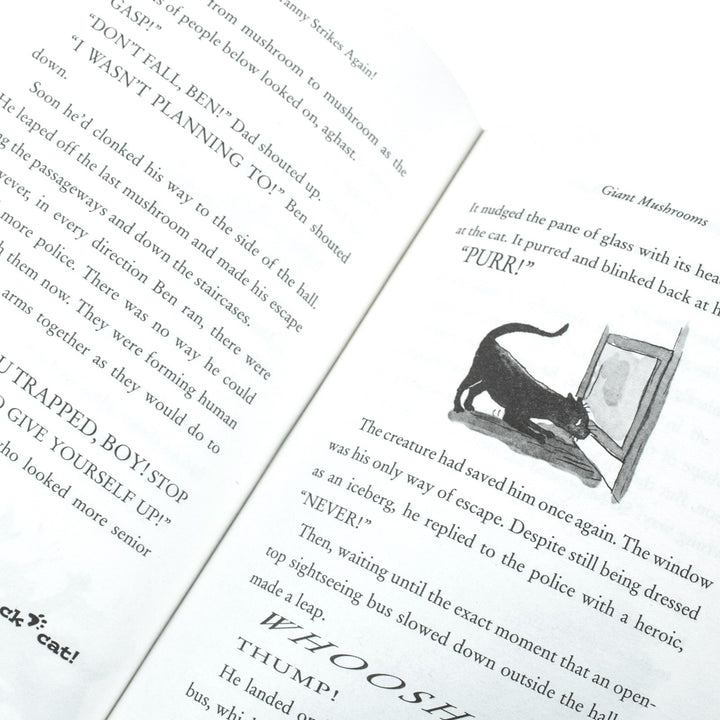 Granny Strikes Again!
from mushroom to mushroom as the
of people below looked on, aghast.
GASP!"
"DON'T FALL, BEN!" Dad shouted up.
"I WASN'T PLANNING TO!" Ben shouted
down.
Soon he'd clonked his way to the side of the hall.
He leaped off the last mushroom and made his escape
the passageways and down the staircases.
in every direction Ben ran, there were
more police. There was no way he could
them now. They were forming human
arms together as they would do to
TRAPPED, BOY! STOP
GIVE YOURSELF UP!"
who looked more senior
cat!
Giant Mushrooms
It nudged the pane of glass with its
at the cat. It purred and blinked back at
"PURR!"
The creature had saved him once again. The window
was his only way of escape. Despite still being dressed
as an iceberg, he replied to the police with a heroic,
"NEVER!"
Then, waiting until the exact moment that an open-
top sightseeing bus slowed down outside the
made a leap.
WHOOSH
THUMP!
He landed
bus,